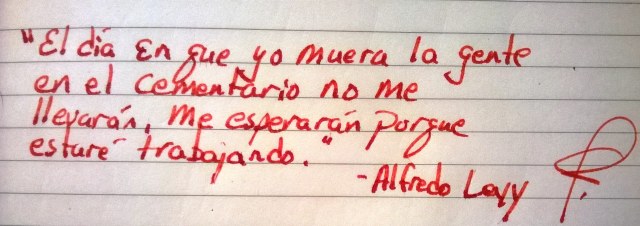 "El día En que yo muera la gente
en el cementario no me
llevarán, me esperarán porque
estaré trabajando."
-Alfredo Levy